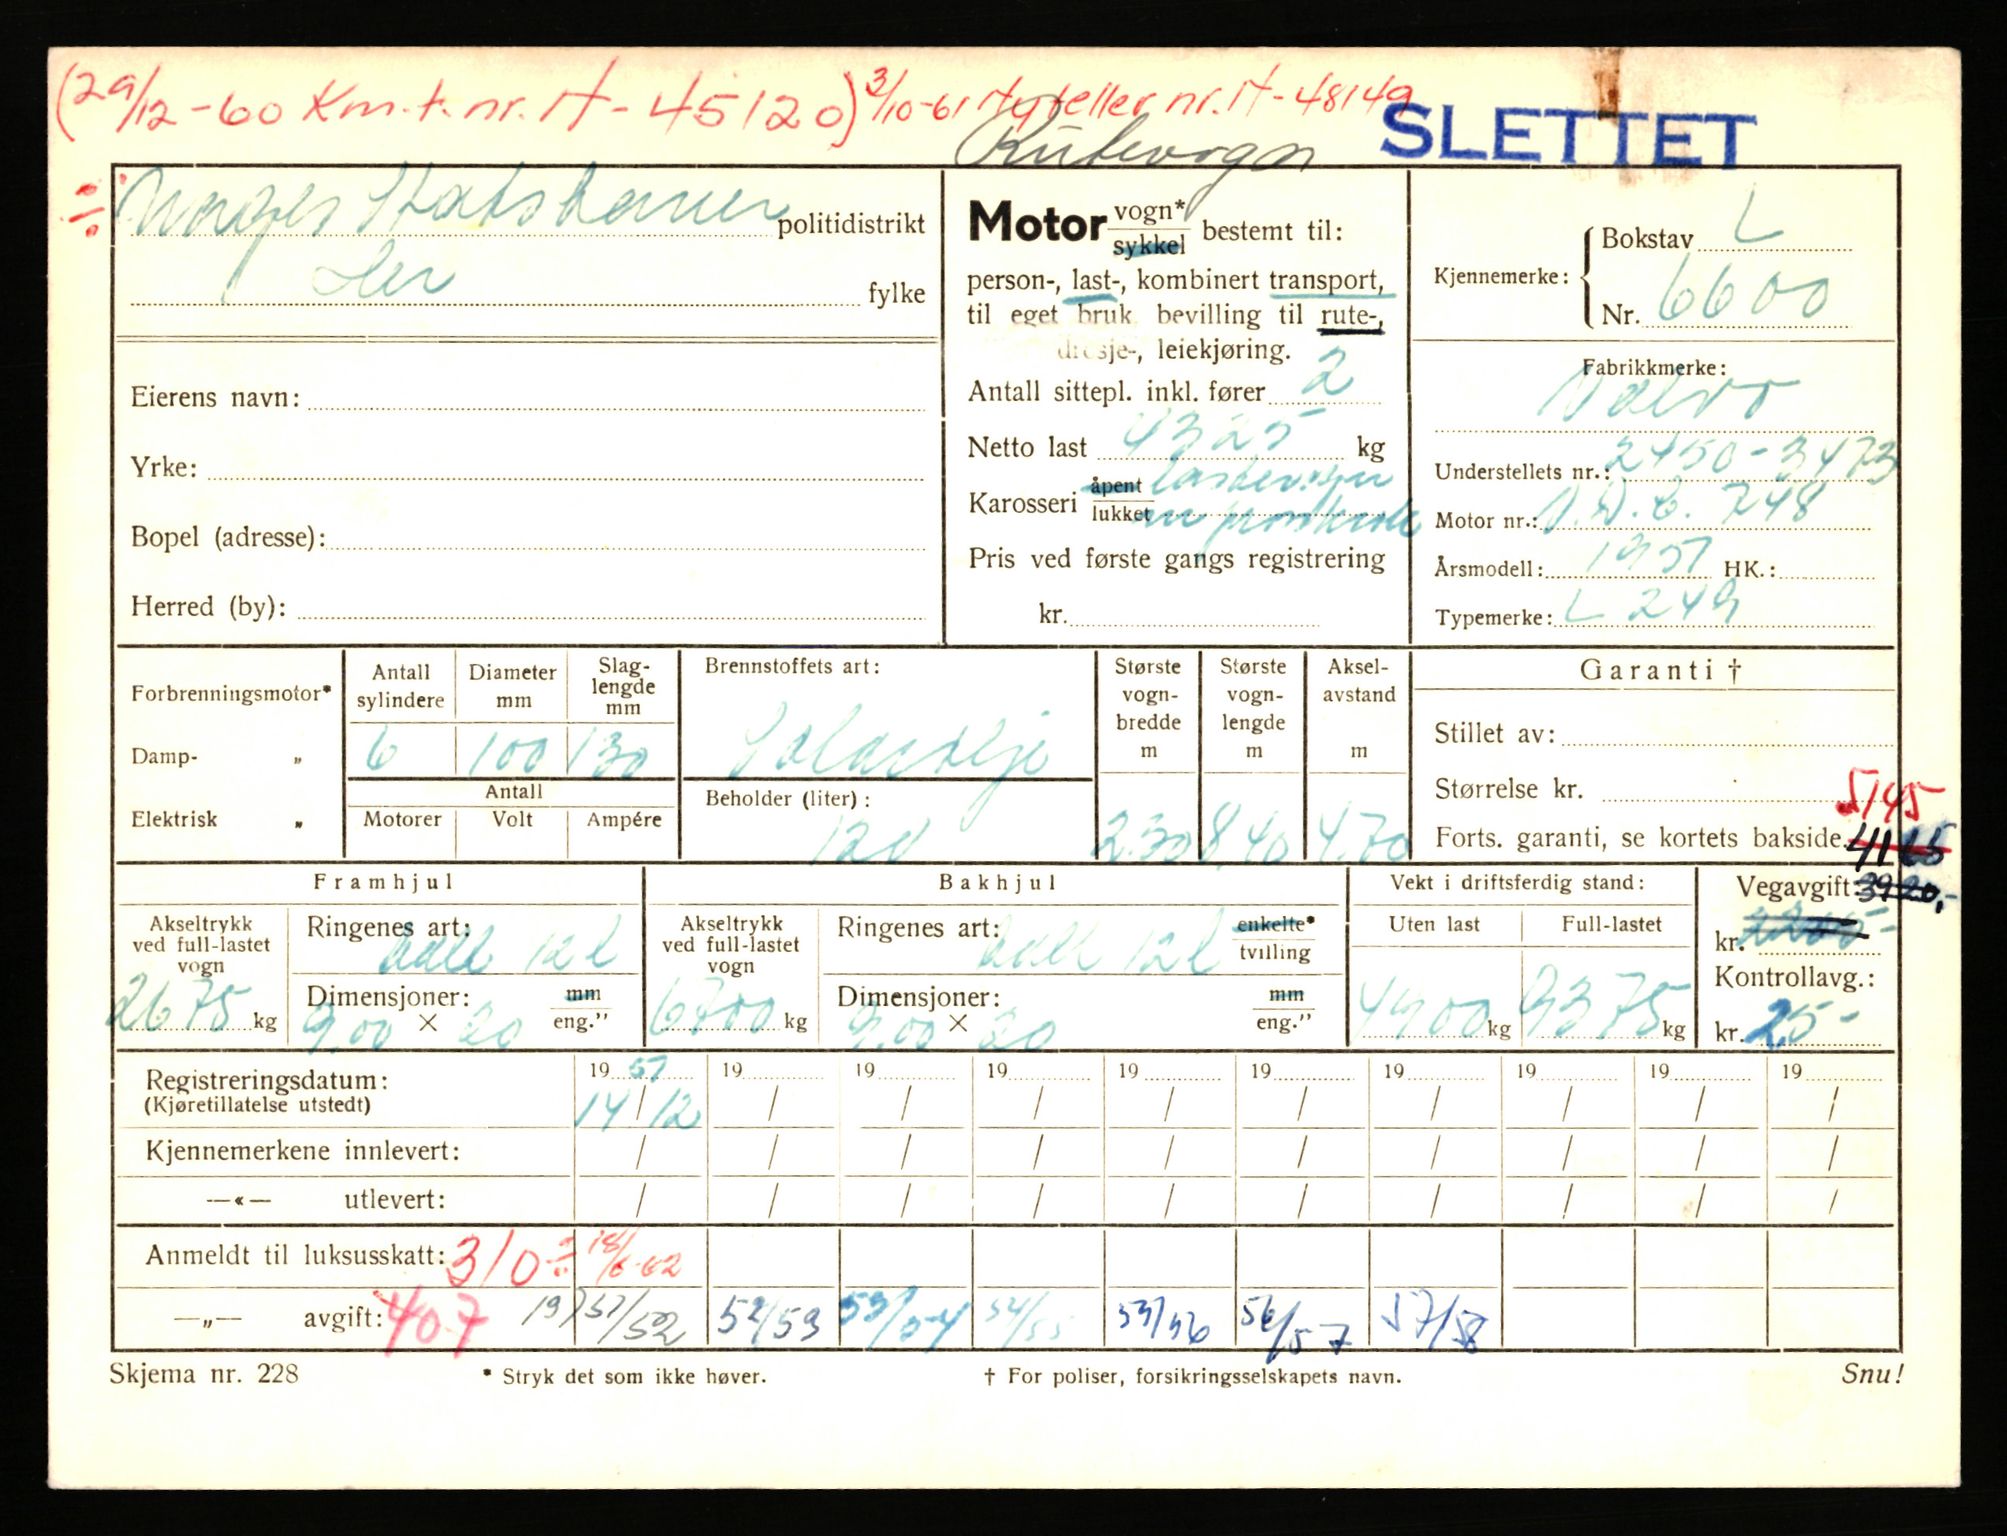 (29/12-60 Km.t. nr. A-45120) 3/10-61 Ny teller nr. A-48149
Rutevogn
SLETTET
Norges Statsbaner politidistrikt
fylke
Eierens navn:
Yrke:
Bopel (adresse):
Herred (by):
Motor vogn* sykkel bestemt til:
person-, last-, kombinert transport,
til eget bruk, bevilling til rute-,
drosje-, leiekjøring.
Antall sittepl. inkl. fører 2
Netto last 4325 kg
Karosseri åpent lukket
Pris ved første gangs registrering
kr.
Kjennemerke: Bokstav L
Nr. 6600
Fabrikkmerke:
Volvo
Understellets nr.: 2450-3473
Motor nr.: 748
Årsmodell: 1951 HK.:
Typemerke: L 249
Forbrenningsmotor*
Damp- „
Elektrisk „
Antall sylindere Diameter mm Slag-lengde mm
6 100 130
Antall
Motorer Volt Ampére
Brennstoffets art:
Solarolje
Beholder (liter):
120
Største vogn-bredde m
2.30
Største vogn-lengde m
8.40
Aksel-avstand m
4.70
Garanti †
Stillet av:
Størrelse kr.
5145
Forts. garanti, se kortets bakside. 4165
Framhjul
Akseltrykk ved full-lastet vogn
2675 kg
Ringenes art: 12 l
Dimensjoner: mm eng."
9.00 × 20
Bakhjul
Akseltrykk ved full-lastet vogn
6700 kg
Ringenes art: 12 l enkelte* tvilling
Dimensjoner: mm eng."
9.00 × 20
Vekt i driftsferdig stand:
Uten last Full-lastet
4900 kg 9375 kg
Vegavgift: 3920,-
kr.
Kontrollavg.:
kr. 25-
Registreringsdatum: 19 51 19 19 19 19 19 19 19 19 19
(Kjøretillatelse utstedt) 14/12 / / / / / / / / /
Kjennemerkene innlevert: / / / / / / / / / /
—«— utlevert: / / / / / / / / / /
Anmeldt til luksusskatt: 310 18/6-62
—„— avgift: 407 1951/52 52/53 53/54 54/55 55/56 56/57 57/58
Skjema nr. 228 * Stryk det som ikke høver. † For poliser, forsikringsselskapets navn. Snu!